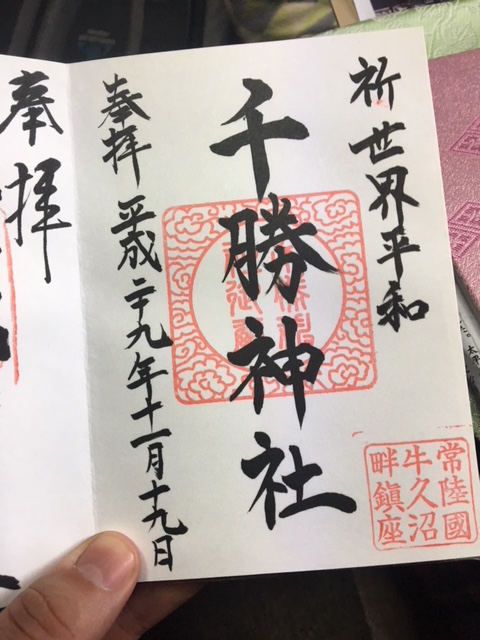 祈世界平和
千勝神社
奉拝 平成二十九年十一月十九日
常陸國
牛久沼
畔鎮座
奉拝